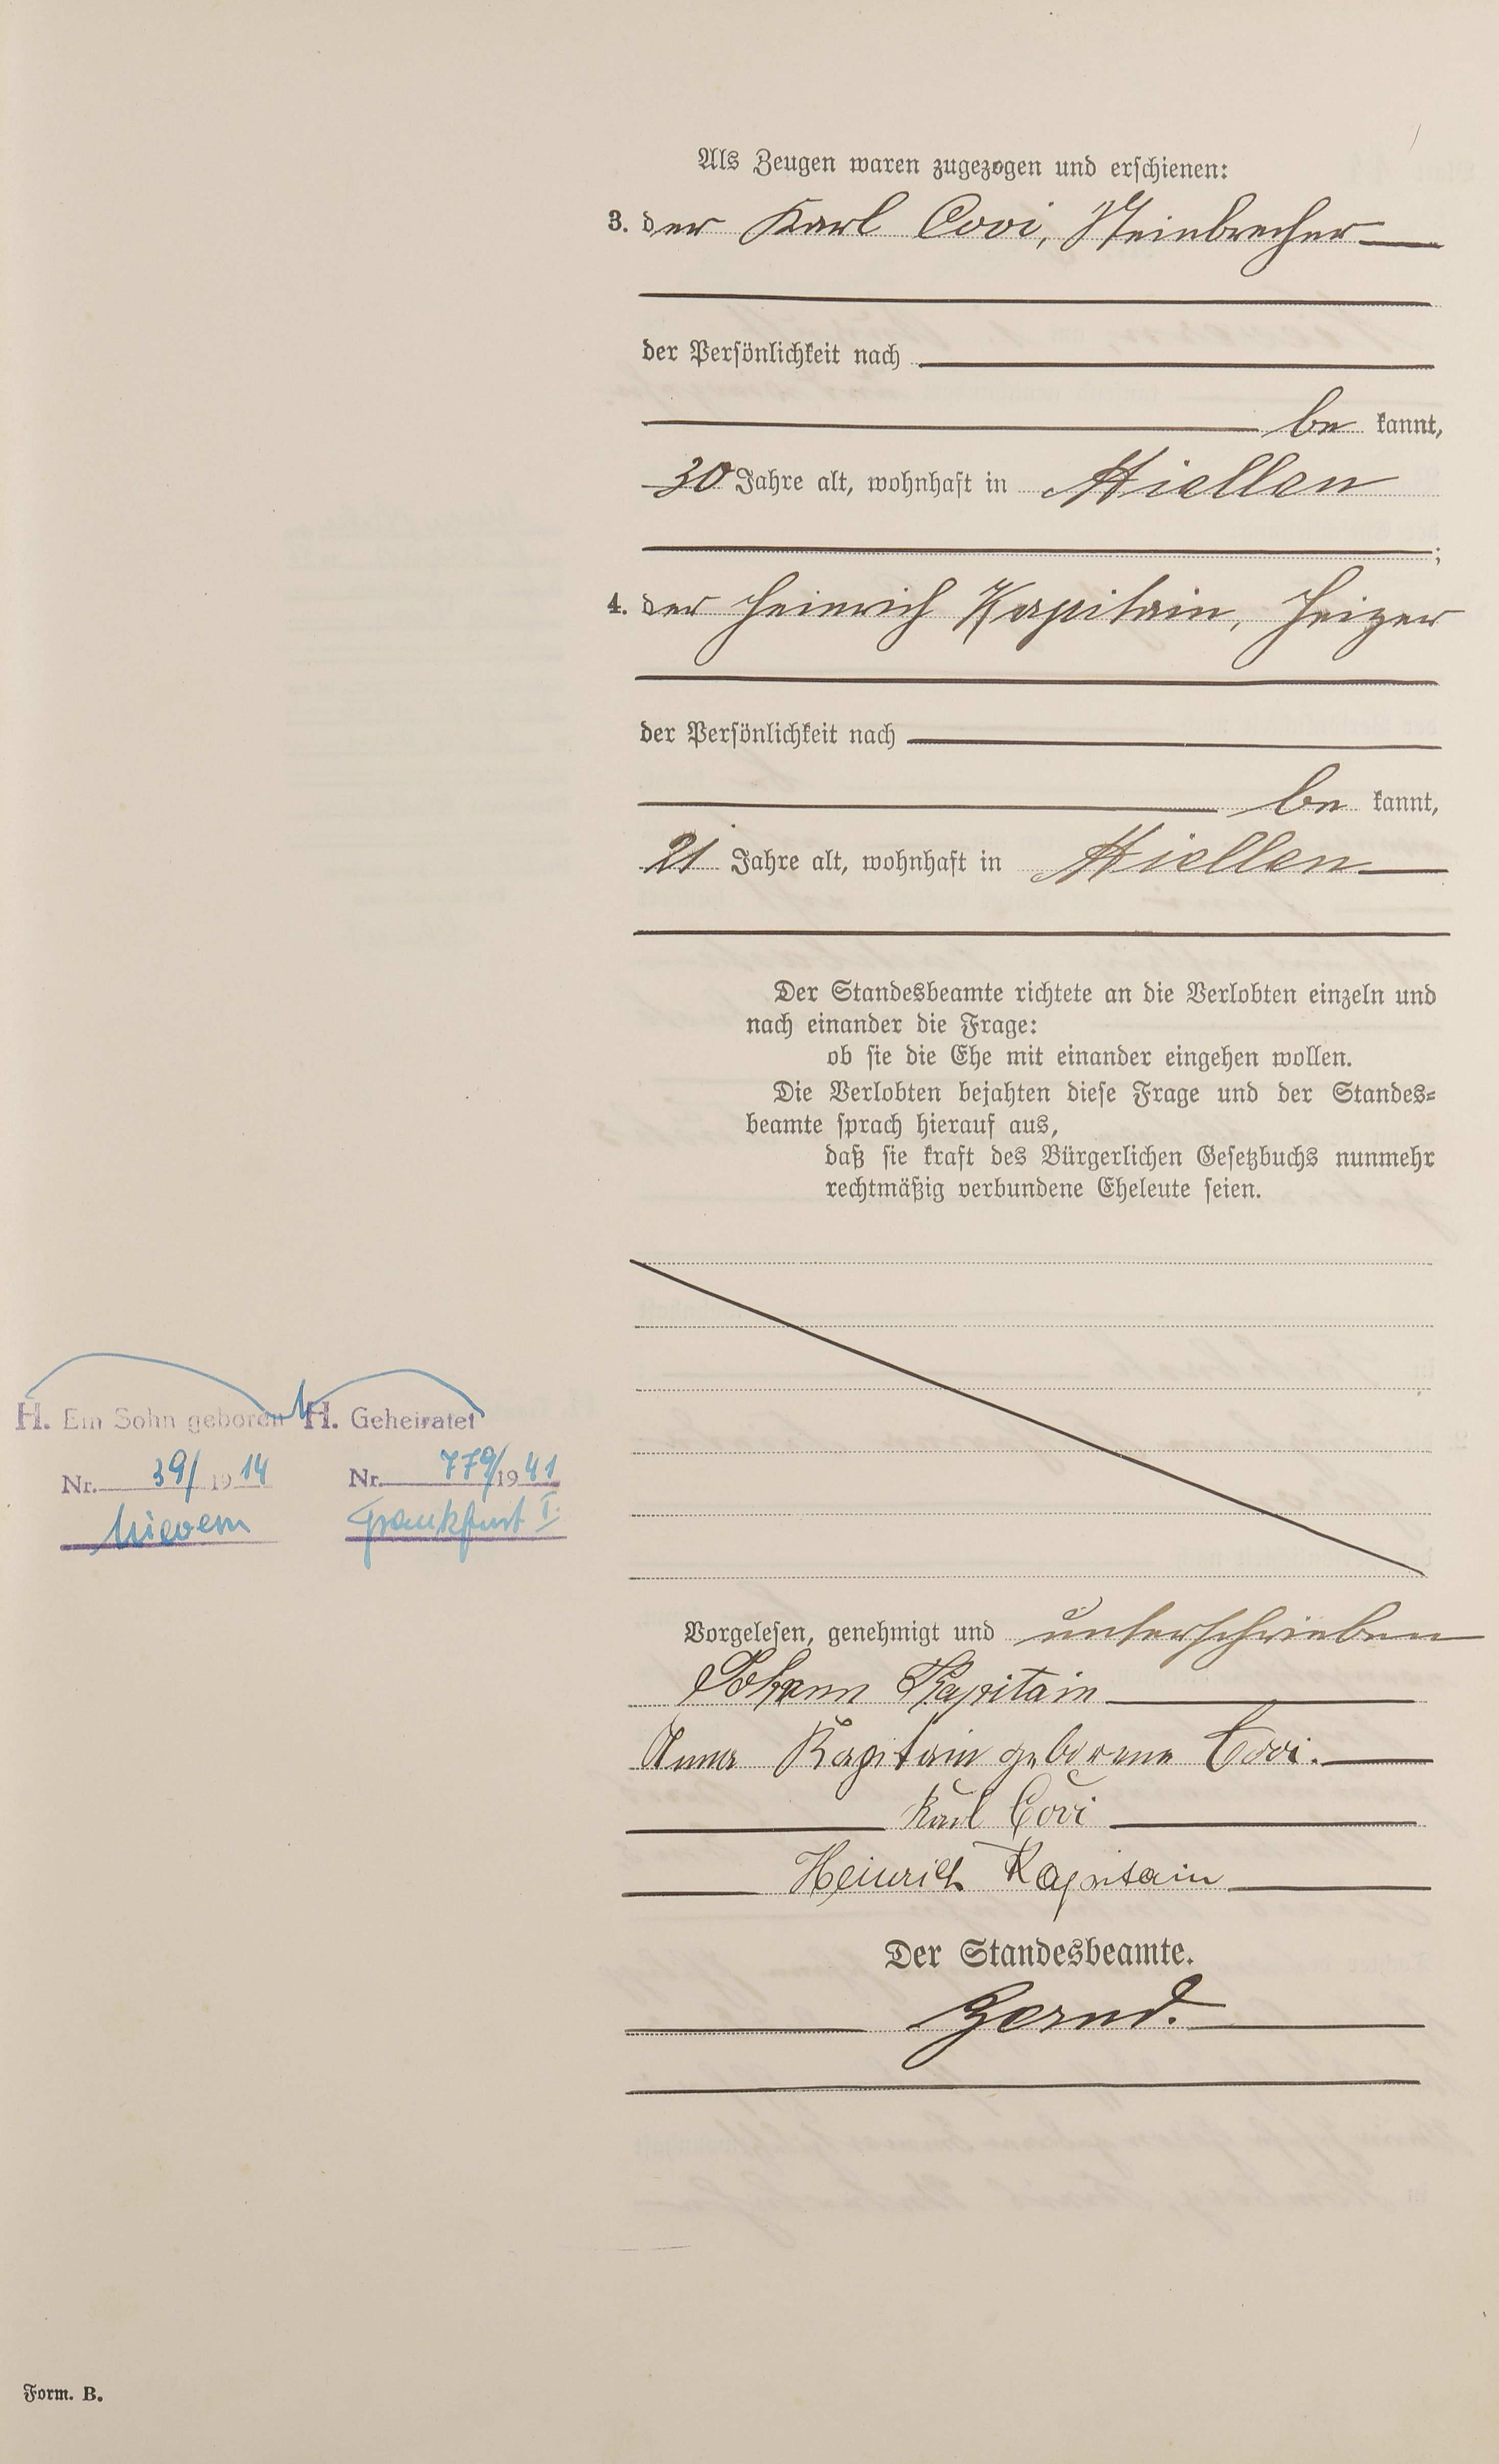 Als Zeugen waren zugezogen und erschienen:
3. der Karl Covi, Steinbrecher
der Persönlichkeit nach
be kannt,
30 Jahre alt, wohnhaft in Miellen
;
4. der Heinrich Kapitain, Heizer
der Persönlichkeit nach
be kannt,
21 Jahre alt, wohnhaft in Miellen
Der Standesbeamte richtete an die Verlobten einzeln und
nach einander die Frage:
ob sie die Ehe mit einander eingehen wollen.
Die Verlobten bejahten diese Frage und der Standes-
beamte sprach hierauf aus,
daß sie kraft des Bürgerlichen Gesetzbuchs nunmehr
rechtmäßig verbundene Eheleute seien.
H. Ein Sohn geboren
Nr. 39/1914
Nievern
H. Geheiratet
Nr. 779/1941
Frankfurt I.
Vorgelesen, genehmigt und unterschrieben
Johann Kapitain
Anna Kapitain geborene Covi.
Karl Covi
Heinrich Kapitain
Der Standesbeamte.
Zernd.
Form. B.